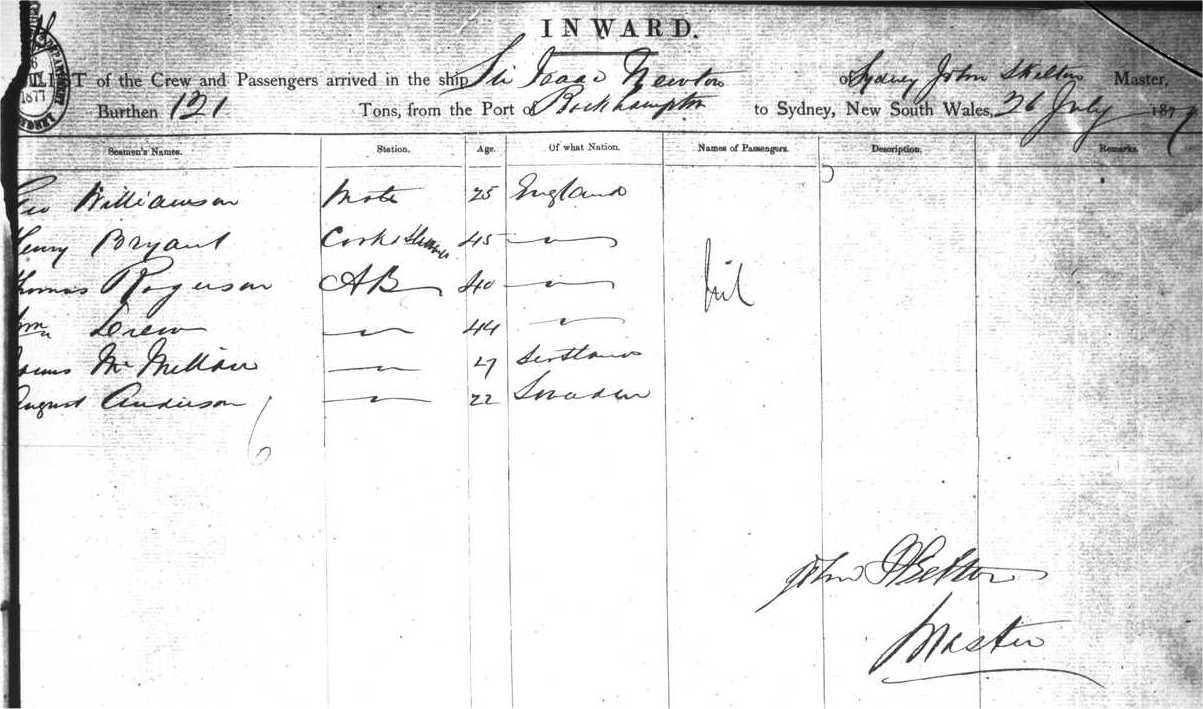 INWARD.
LIST of the Crew and Passengers arrived in the ship Sir Isaac Newton of Sydney John Skelton Master,
Burthen 121 Tons, from the Port of Rockhampton to Sydney, New South Wales, 26 July 1877
Seamen's Names. Station. Age. Of what Nation. Names of Passengers. Description. Remarks.
Geo Williamson Mate 25 England
Henry Bryant Cook & 45 —〃—
Thomas Rogerson AB 40 —〃— Nil
Wm Drew —〃— 44 —〃—
James McMillan —〃— 27 Scotland
August Anderson —〃— 22 Sweden
6
John Skelton
Master